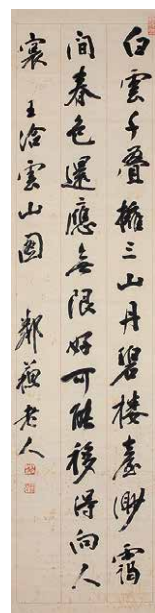 白雲千疊擁三山丹碧樓臺渺靄
間春色還應無限好可能移得向人
寰 王洽雲山圖 鄰蘇老人